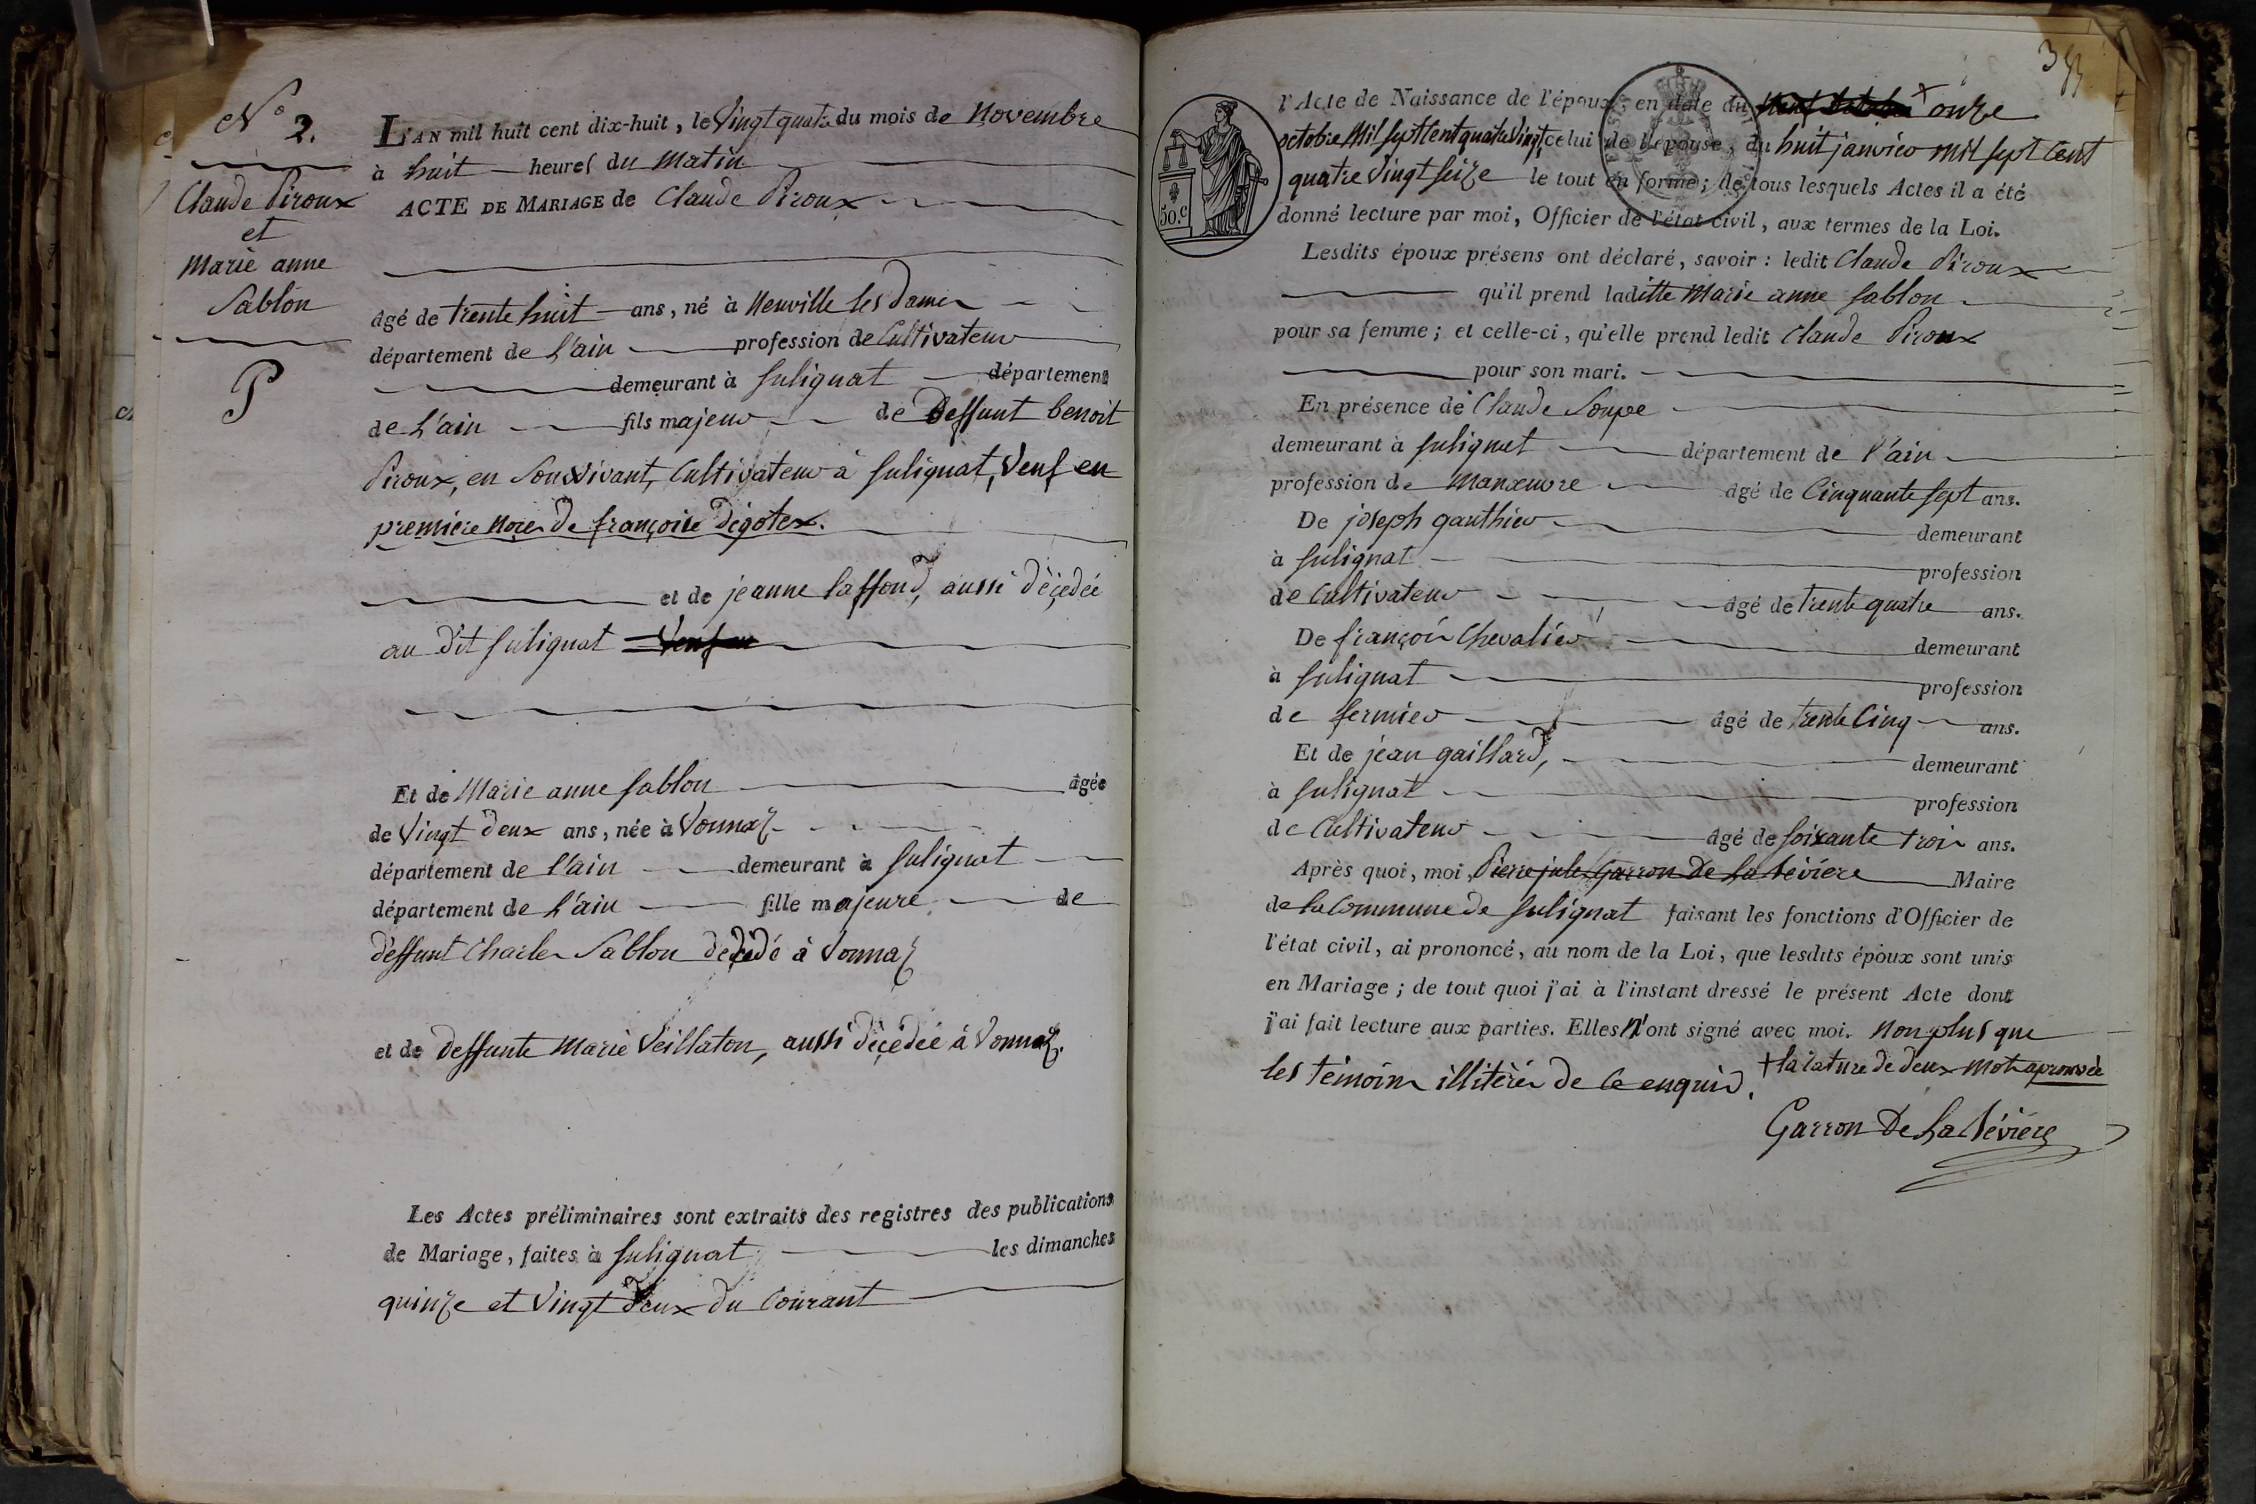 N.o 2.
Claude Piroux
et
Marie anne
Sablon
P
L'AN mil huit cent dix-huit, le Vingt quatre du mois de Novembre
à huit heures du Matin
ACTE DE MARIAGE de Claude Piroux
âgé de trente huit ans, né à Neuville les Dames
département de l'ain profession de Cultivateur
demeurant à Sulignat département
de l'ain fils majeur de Deffunt benoit
Piroux, en Son vivant, Cultivateur à Sulignat, Veuf en
premiere Noces de françoise Digotex.
et de jeanne Laffond, aussi décedée
au dit Sulignat Veuf en
Et de Marie anne Sablon âgée
de Vingt deux ans, née à Vonnaz
département de l'ain demeurant à Sulignat
département de l'ain fille majeure de
deffunt Charles Sablon décédé à Vonnaz
et de deffunte Marie Veillaton, aussi décedée à Vonnaz.
Les Actes préliminaires sont extraits des registres des publications
de Mariage, faites à Sulignat les dimanches
quinze et Vingt deux du Courant
50.c
l'Acte de Naissance de l'époux, en date du onze
octobre Mil Sept Cent quatre Vingt, celui de l'épouse, du huit janvier mil sept Cent
quatre Vingt Seize le tout en forme; de tous lesquels Actes il a été
donné lecture par moi, Officier de l'état civil, aux termes de la Loi.
Lesdits époux présens ont déclaré, savoir: ledit Claude Piroux
qu'il prend laditte Marie anne Sablon
pour sa femme; et celle-ci, qu'elle prend ledit Claude Piroux
pour son mari.
En présence de Claude Soupe
demeurant à Sulignat département de l'ain
profession de Manœuvre âgé de Cinquante Sept ans.
De joseph gauthier demeurant
à Sulignat profession
de Cultivateur âgé de trente quatre ans.
De françois Chevalier demeurant
à Sulignat profession
de fermier âgé de trente Cinq ans.
Et de jean gaillard, demeurant
à Sulignat profession
de Cultivateur âgé de soixante trois ans.
Après quoi, moi, Pierre jules Garron De La Bévière Maire
de la Commune de Sulignat faisant les fonctions d'Officier de
l'état civil, ai prononcé, au nom de la Loi, que lesdits époux sont unis
en Mariage; de tout quoi j'ai à l'instant dressé le présent Acte dont
j'ai fait lecture aux parties. Elles N'ont signé avec moi. Non plus que
les témoins illitérés de Ce enquis.
+ la rature de deux Mots aprouvée
Garron De La Bévière